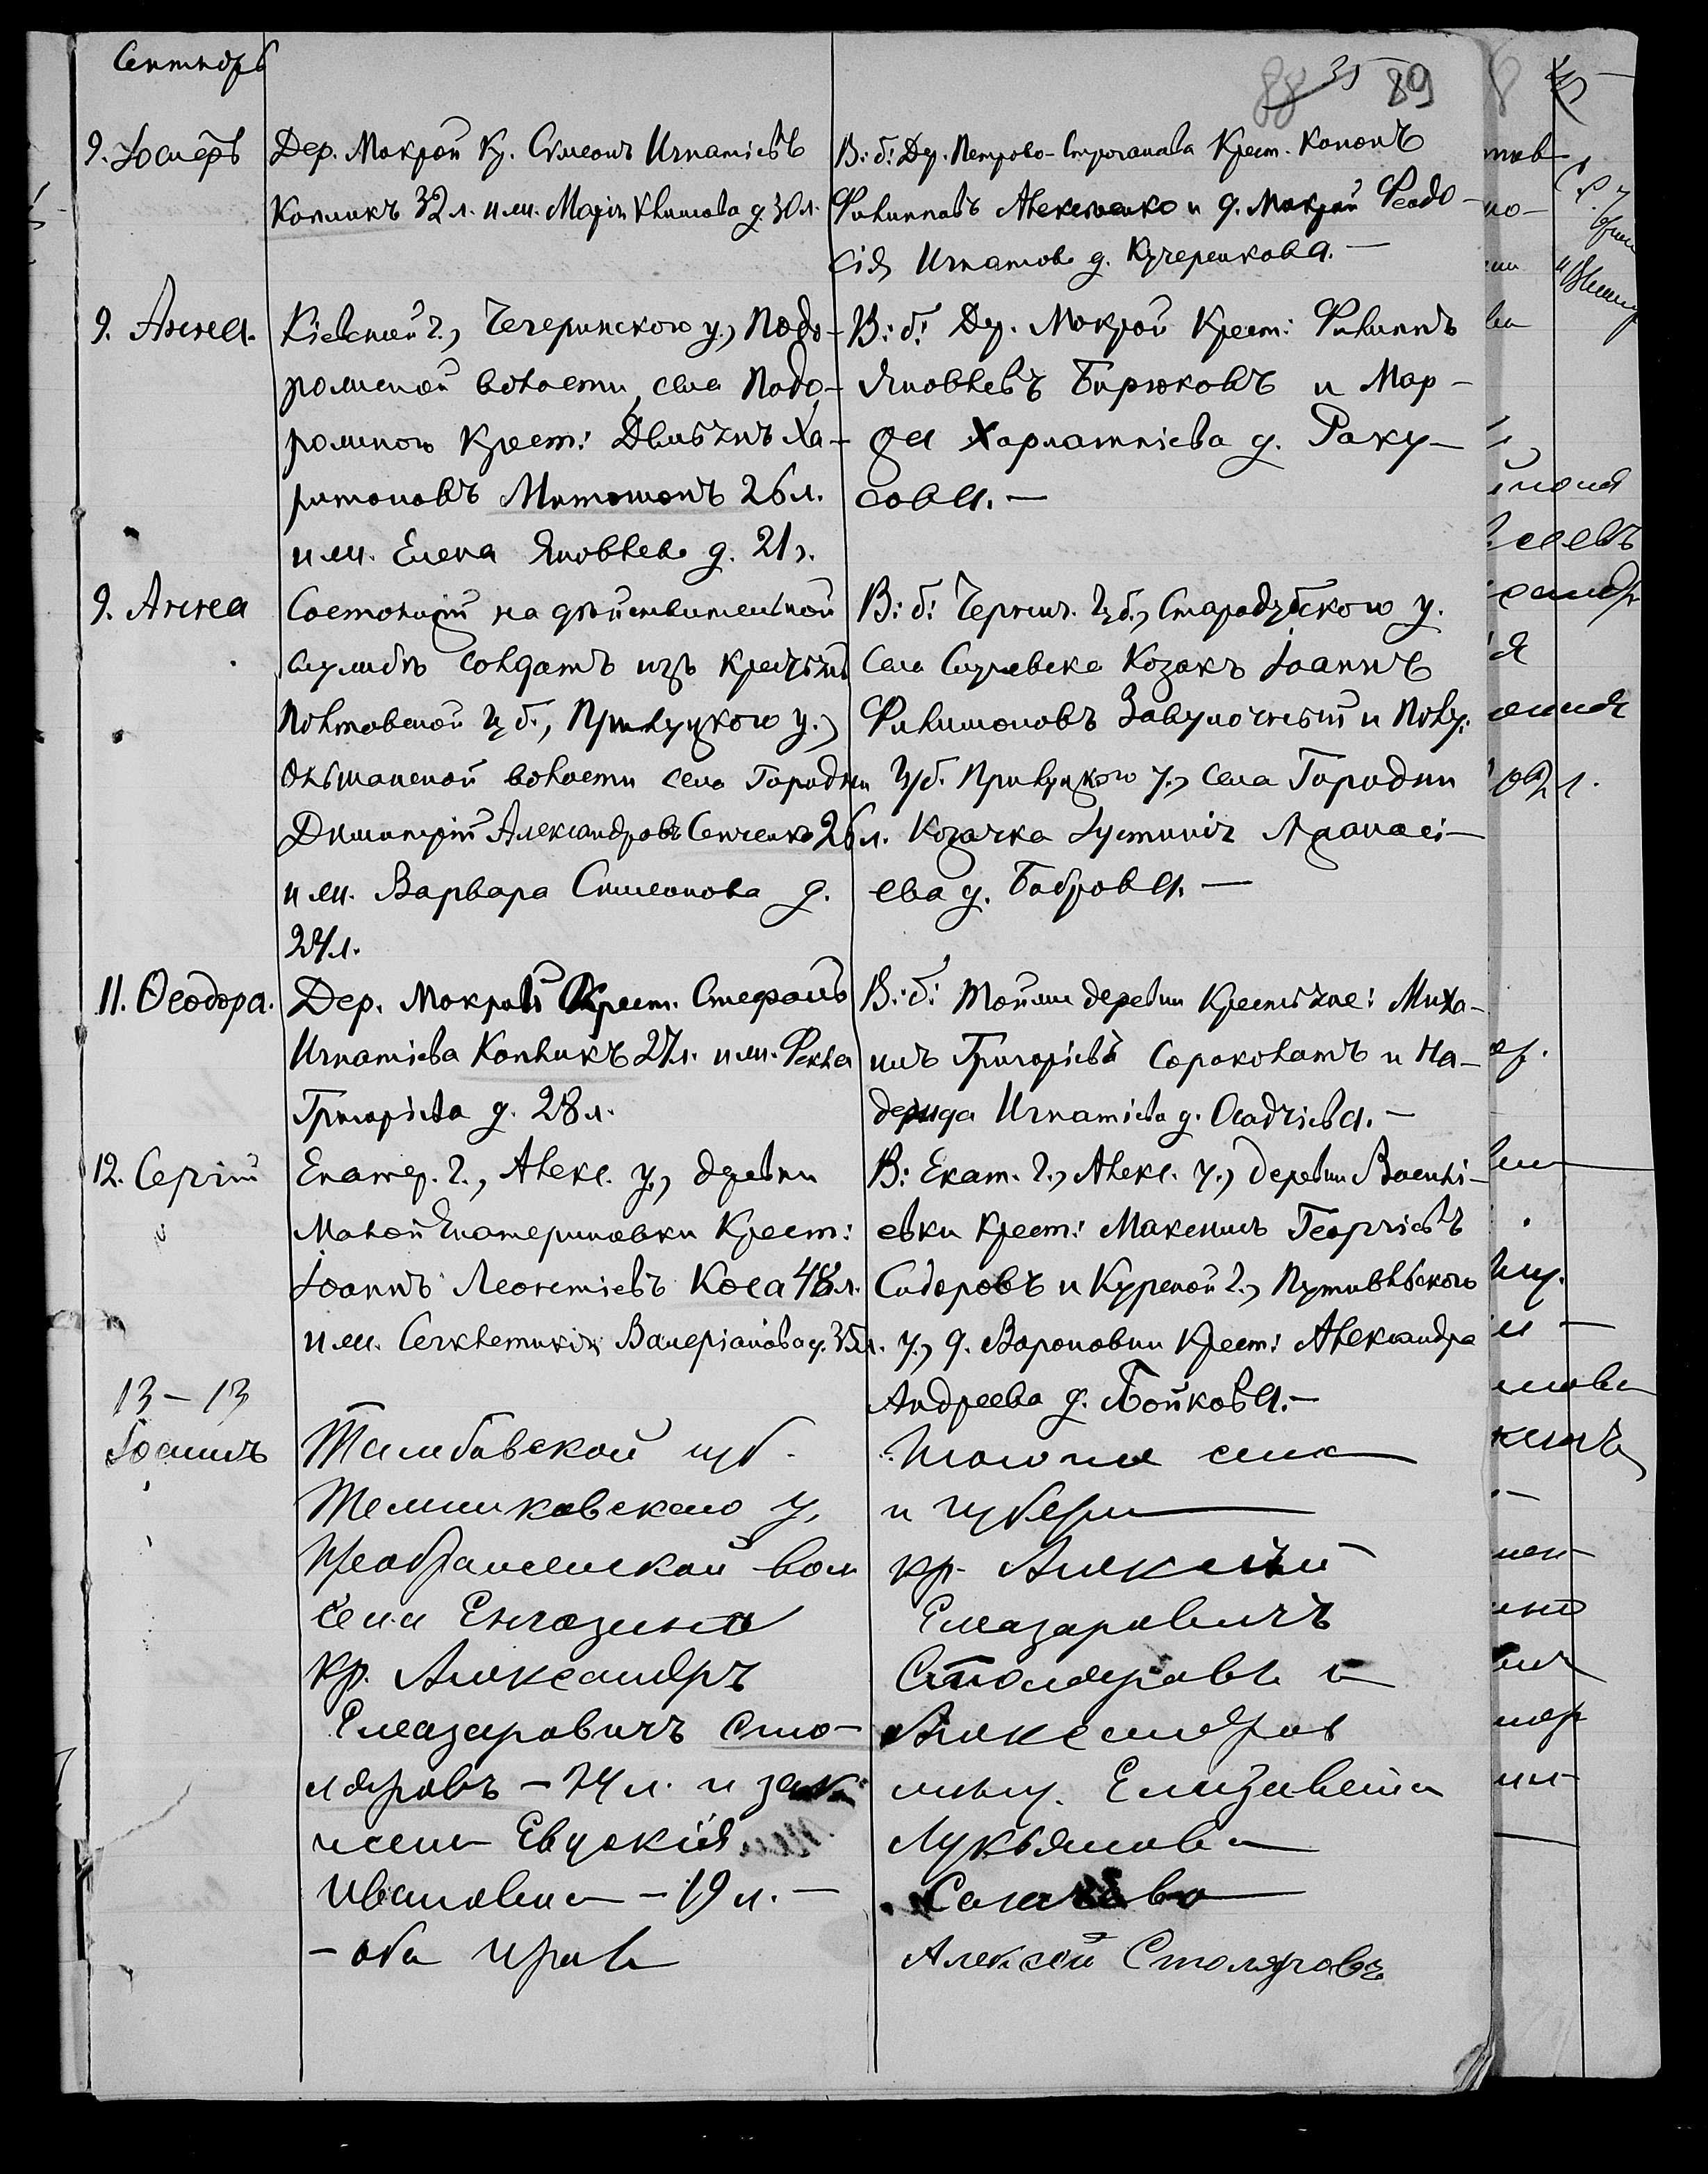 Сентябрь
35 89
9. Іосифъ
Дер. Мокрой Кр. Симеонъ Игнатіевъ
Копликъ 32 л. и жн. Марія Климова д. 30 л.
В: б: Дер. Петрово- Крест. Кононъ
Филипповъ Алексеенко и д. Мокрой Феодо-
сія Игнатова д. Кучеренкова. —
9. Анна.
Кіевской г., Чегеринскаго у., Подо-
рожной волости, села Подо-
рожнаго Крест: Ха-
ритоновъ Митошонъ 26 л.
и жн. Елена Яковлева д. 21 г.
В: б: Дер. Мокрой Крест: Филиппъ
Яковлевъ Бирюковъ и Мар-
фа Харлампіева д. Раку-
сова. —
9. Анна
Состоящій на дѣйствительной
службѣ солдатъ изъ крестьянъ
Полтавской губ., Прилуцкого у.,
Ольшанской волости села Городни
Димитрій Александровъ Сенченко 26 л.
и жн. Варвара Симеонова д.
24 л.
В: б: Черниг. губ., Стародубского у.
Села Козакъ Іоаннъ
Филимоновъ Завулочный и Полт.
губ. Прилуцкого у., села Городни
Козачка Іустинія Аѳанасі-
ева д. Боброва. —
11. Ѳеодора.
Дер. Мокрой Крест. Стефанъ
Игнатіевъ Копликъ 27 л. и жн. Фекла
Григоріева д. 28 л.
В: б: Тойже деревни Крестьяне: Миха-
илъ Григоріевъ Сороколатъ и На-
дежда Игнатіева д. Осадчіева. —
12. Сергій
Екатер. г., Алекс. у., деревни
Малой Екатериновки Крест:
Іоаннъ Леонтіевъ Коса 48 л.
и жн. Секлетикія Валеріанова д. 35 л.
В: Екат. г., Алекс. у., деревни Василі-
евки Крест: Максимъ Георгіевъ
Сидоровъ и Курской г., Путивльского
у., д. Вороновки Крест: Александра
Андреева д. Бойкова. —
13 – 13
Іоаннъ
Тамбовской губ.
Темниковскаго у.
Преображенской вол
села Енгозина
кр. Александръ
Елеазаровичъ Сто-
ляровъ – 24 л. и зак.
жена Евдокія
Ивановна – 19 л. –
– оба прав
Того же села
и губерн
кр. Алексѣй
Елеазаровичъ
Столяровъ и
Александров
Елизавета
Лукьянова
Алексѣй Столяровъ